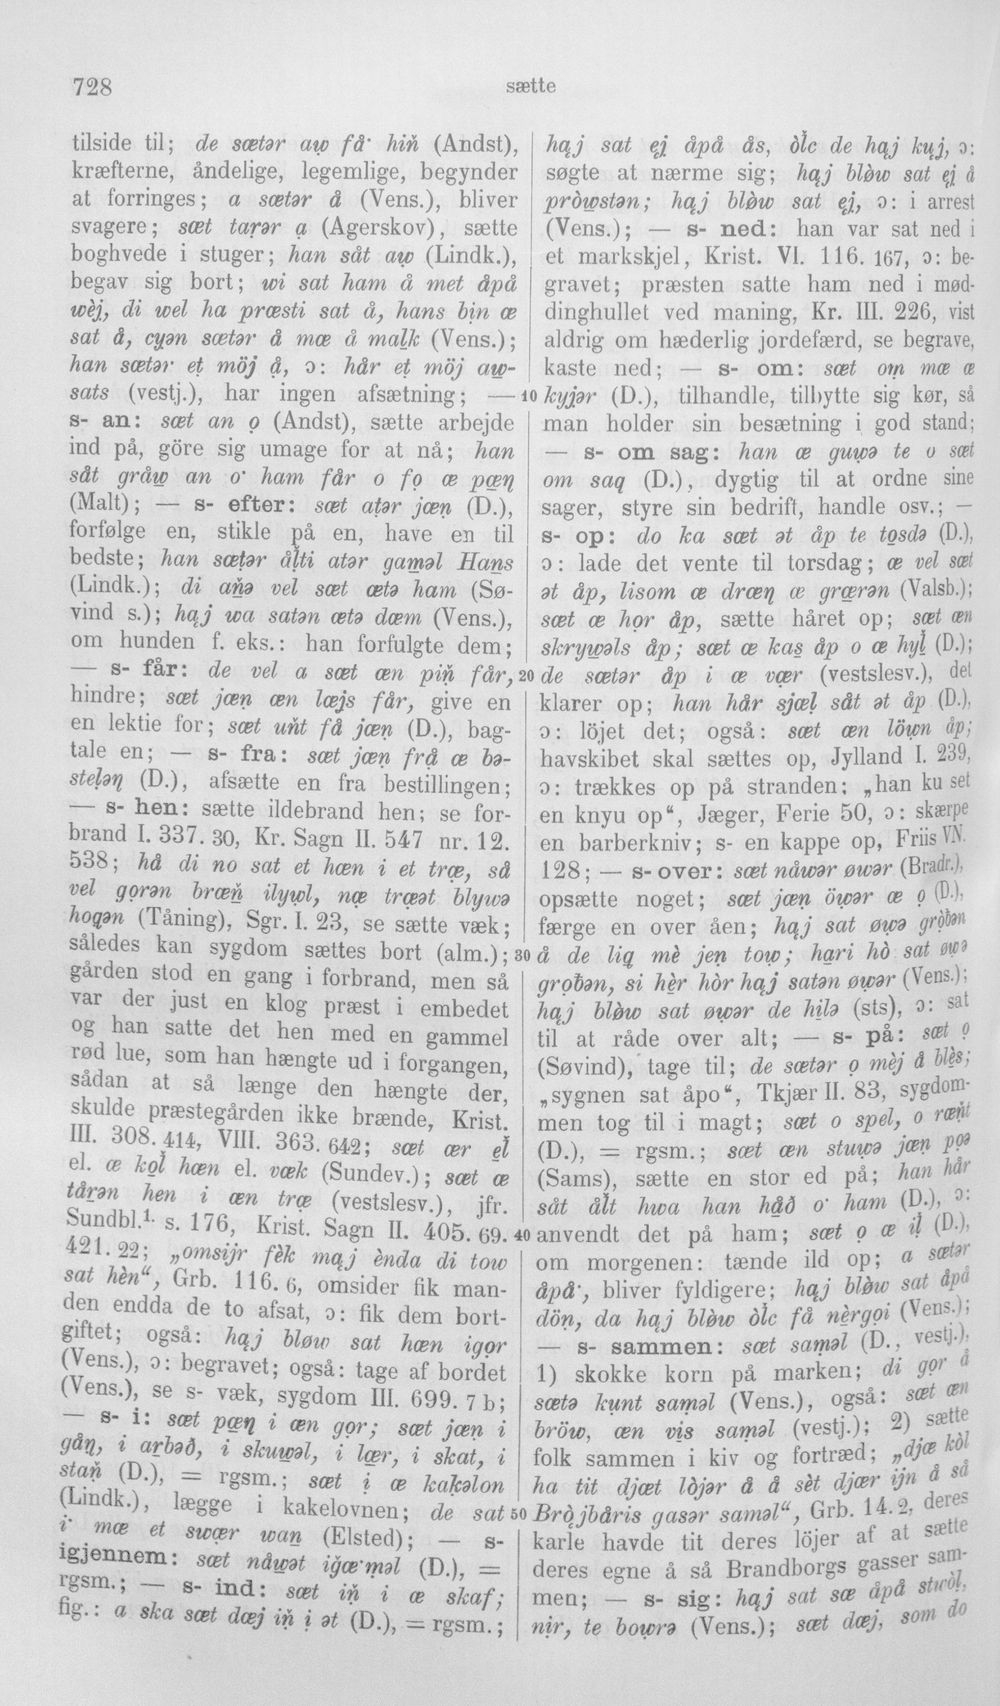 728
sætte
tilside til; de sætər aw̯ få· hiň (Andst),
kræfterne, åndelige, legemlige, begynder
at forringes; a sætər å (Vens.), bliver
svagere; sæt tar̯ər a̤ (Agerskov), sætte
boghvede i stuger; han såt aw̯ (Lindk.),
begav sig bort; wi sat ham å met åpå
wèj, di wel ha præsti sat å, hans bin æ
sat å, cyən sætər å mæ å mal̯k (Vens.);
han sætər et̯ möj å̤, ɔ: hår et̯ möj aw̯-
sats (vestj.), har ingen afsætning; —
s- an: sæt an o̤ (Andst), sætte arbejde
ind på, göre sig umage for at nå; han
såt gråw̯ an o· ham får o fo̤ æ pæŋ
(Malt); — s- efter: sæt at̯ər jæn̯ (D.),
forfølge en, stikle på en, have en til
bedste; han sætər ål̯ti atər gam̯əl Han̯s
(Lindk.); di aňə vel sæt ætə ham (Sø-
vind s.); ha̤j wa satən ætə dæm (Vens.),
om hunden f. eks.: han forfulgte dem;
— s- får: de vel a sæt æn piň får,
hindre; sæt jæn̯ æn læjs får, give en
en lektie for; sæt uňt få jæn̯ (D.), bag-
tale en; — s- fra: sæt jæn̯ frå̤ æ bə-
stel̯əŋ (D.), afsætte en fra bestillingen;
— s- hen: sætte ildebrand hen; se for-
brand I. 337. 30, Kr. Sagn II. 547 nr. 12.
538; hå di no sat et hæn i et træ̤, så
vel go̤rən bræň ilyw̯l, næ̤ træ̤ət blywə
hogən (Tåning), Sgr. I. 23, se sætte væk;
således kan sygdom sættes bort (alm.);
gården stod en gang i forbrand, men så
var der just en klog præst i embedet
og han satte det hen med en gammel
rød lue, som han hængte ud i forgangen,
sådan at så længe den hængte der,
skulde præstegården ikke brænde, Krist.
III. 308. 414, VIII. 363. 642; sæt ær el̆
el. æ ko̤l̆ hæn el. væk (Sundev.); sæt æ
tår̯ən hen i æn træ (vestslesv.), jfr.
Sundbl.1. s. 176, Krist. Sagn II. 405. 69.
421. 22; „omsijr fèk ma̤j ènda di tow
sat hèn“, Grb. 116. 6, omsider fik man-
den endda de to afsat, ɔ: fik dem bort-
giftet; også: ha̤j bløw sat hæn igo̤r
(Vens.), ɔ: begravet; også: tage af bordet
(Vens.), se s- væk, sygdom III. 699. 7 b;
— s- i: sæt pæŋ i æn go̤r; sæt jæn̯ i
gåŋ, i ar̯bəð, i skuw̯əl, i læ̤r, i skat, i
staň (D.), = rgsm.; sæt i̤ æ kak̯əlon
(Lindk.), lægge i kakelovnen; de sat
i· mæ et swæ̤r wan̯ (Elsted); — s-
igjennem: sæt nåw̯ət iğæ·m̯əl (D.), =
rgsm.; — s- ind: sæt iň i æ skaf;
fig.: a ska sæt dæj iň i̤ ət (D.), = rgsm.;
ha̤j sat ej̤ åpå ås, òl̆c de ha̤j kṳj, ɔ:
søgte at nærme sig; ha̤j blòw sat ej̤ å
pròw̯stən; ha̤j blòw sat ej̤, ɔ: i arrest
(Vens.); — s- ned: han var sat ned i
et markskjel, Krist. VI. 116. 167, ɔ: be-
gravet; præsten satte ham ned i mød-
dinghullet ved maning, Kr. III. 226, vist
aldrig om hæderlig jordefærd, se begrave,
kaste ned; — s- om: sæt om̯ mæ æ
10 kyjər (D.), tilhandle, tilbytte sig kør, så
man holder sin besætning i god stand;
— s- om sag: han æ guw̯ə te o sæt
om saq (D.), dygtig til at ordne sine
sager, styre sin bedrift, handle osv.; —
s- op: do ka sæt ət åp te to̤sdə (D.),
ɔ: lade det vente til torsdag; æ vel sæt
ət åp, lisom æ dræŋ æ græ̤rən (Valsb.);
sæt æ ho̤r åp, sætte håret op; sæt æn
skryw̯əls åp; sæt æ kas̯ åp o æ hyl̆ (D.);
20 de sætər åp i æ væ̤r (vestslesv.), det
klarer op; han hår sjæl̯ såt ət åp (D.),
ɔ: löjet det; også: sæt æn löw̯n åp;
havskibet skal sættes op, Jylland I. 239,
ɔ: trækkes op på stranden; „han ku set
en knyu op“, Jæger, Ferie 50, ɔ: skærpe
en barberkniv; s- en kappe op, Friis VN.
128; — s- over: sæt nåwər øwər (Bradr.),
opsætte noget; sæt jæn̯ öw̯ər æ o̤ (D.),
færge en over åen; ha̤j sat øw̯ə gròbən
30 å de liq mè jen̯ tow; ha̤ri hò sat øw̯ə
gro̤bən, si hèr hòr ha̤j satən øw̯ər (Vens.);
ha̤j blòw sat øw̯ər de hilə (sts), ɔ: sat
til at råde over alt; — s- på: sæt o̤
(Søvind), tage til; de sætər o̤ mèj å blès;
„sygnen sat åpo“, Tkjær II. 83, sygdom-
men tog til i magt; sæt o spel, o ræňt
(D.), = rgsm.; sæt æn stuw̯ə jæn̯ po̤ə
(Sams), sætte en stor ed på; han hår
såt ål̆t hwa han hå̤ð o· ham (D.), ɔ:
40 anvendt det på ham; sæt o̤ æ il̆ (D.),
om morgenen: tænde ild op; a sætər
åpå·, bliver fyldigere; ha̤j blòw sat åpå
dön̯, da ha̤j blòw òl̆c få nèrgo̤i (Vens.);
— s- sammen: sæt sam̯əl (D., vestj.),
1) skokke korn på marken; di go̤r å
sætə kun̯t sam̯əl (Vens.), også: sæt æn
bröw, æn vis̯ sam̯əl (vestj.); 2) sætte
folk sammen i kiv og fortræd; „djæ kòl
ha tit djæt lòjər å å sèt djær ijn å så
50 Brò̤jbåris gasər saməl“, Grb. 14. 2, deres
karle havde tit deres löjer af at sætte
deres egne å så Brandborgs gasser sam-
men; — s- sig: ha̤j sat sæ åpå stwòl̯,
nir̯, te bow̯rə (Vens.); sæt dæj, som do